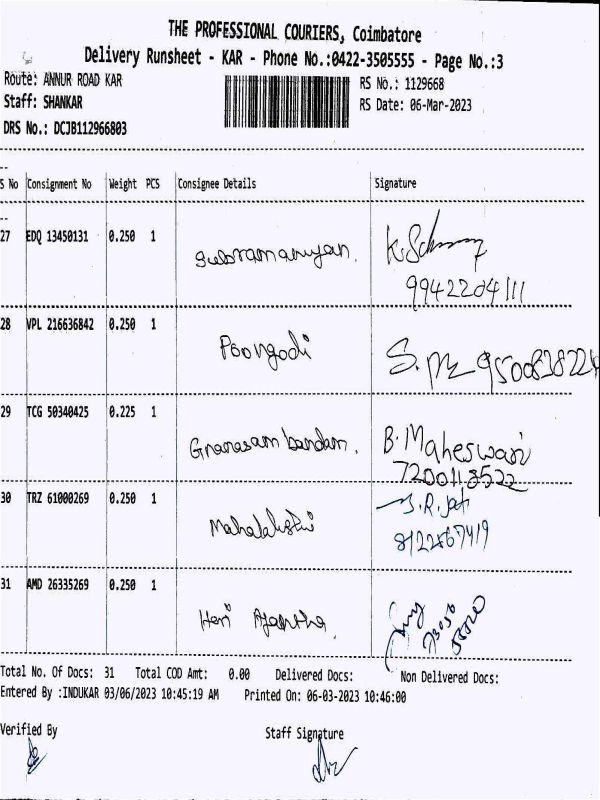 THE PROFESSIONAL COURIERS, Coimbatore
Delivery Runsheet - KAR - Phone No.:0422-3505555 - Page No.:3
Route: ANNUR ROAD KAR RS No.: 1129668
Staff: SHANKAR RS Date: 06-Mar-2023
DRS No.: DCJB112966803
S No Consignment No Weight PCS Consignee Details Signature
27 EDQ 13450131 0.250 1 Subramaniyan.
9942204111
28 VPL 216636842 0.250 1 Poongodi
29 TCG 50340425 0.225 1 Gnanasambandam. B. Maheswari
7200118522
30 TRZ 61000269 0.250 1 Mahalakshmi
8122467419
31 AMD 26335269 0.250 1 Heri
Total No. Of Docs: 31 Total COD Amt: 0.00 Delivered Docs: Non Delivered Docs:
Entered By :INDUKAR 03/06/2023 10:45:19 AM Printed On: 06-03-2023 10:46:00
Verified By Staff Signature